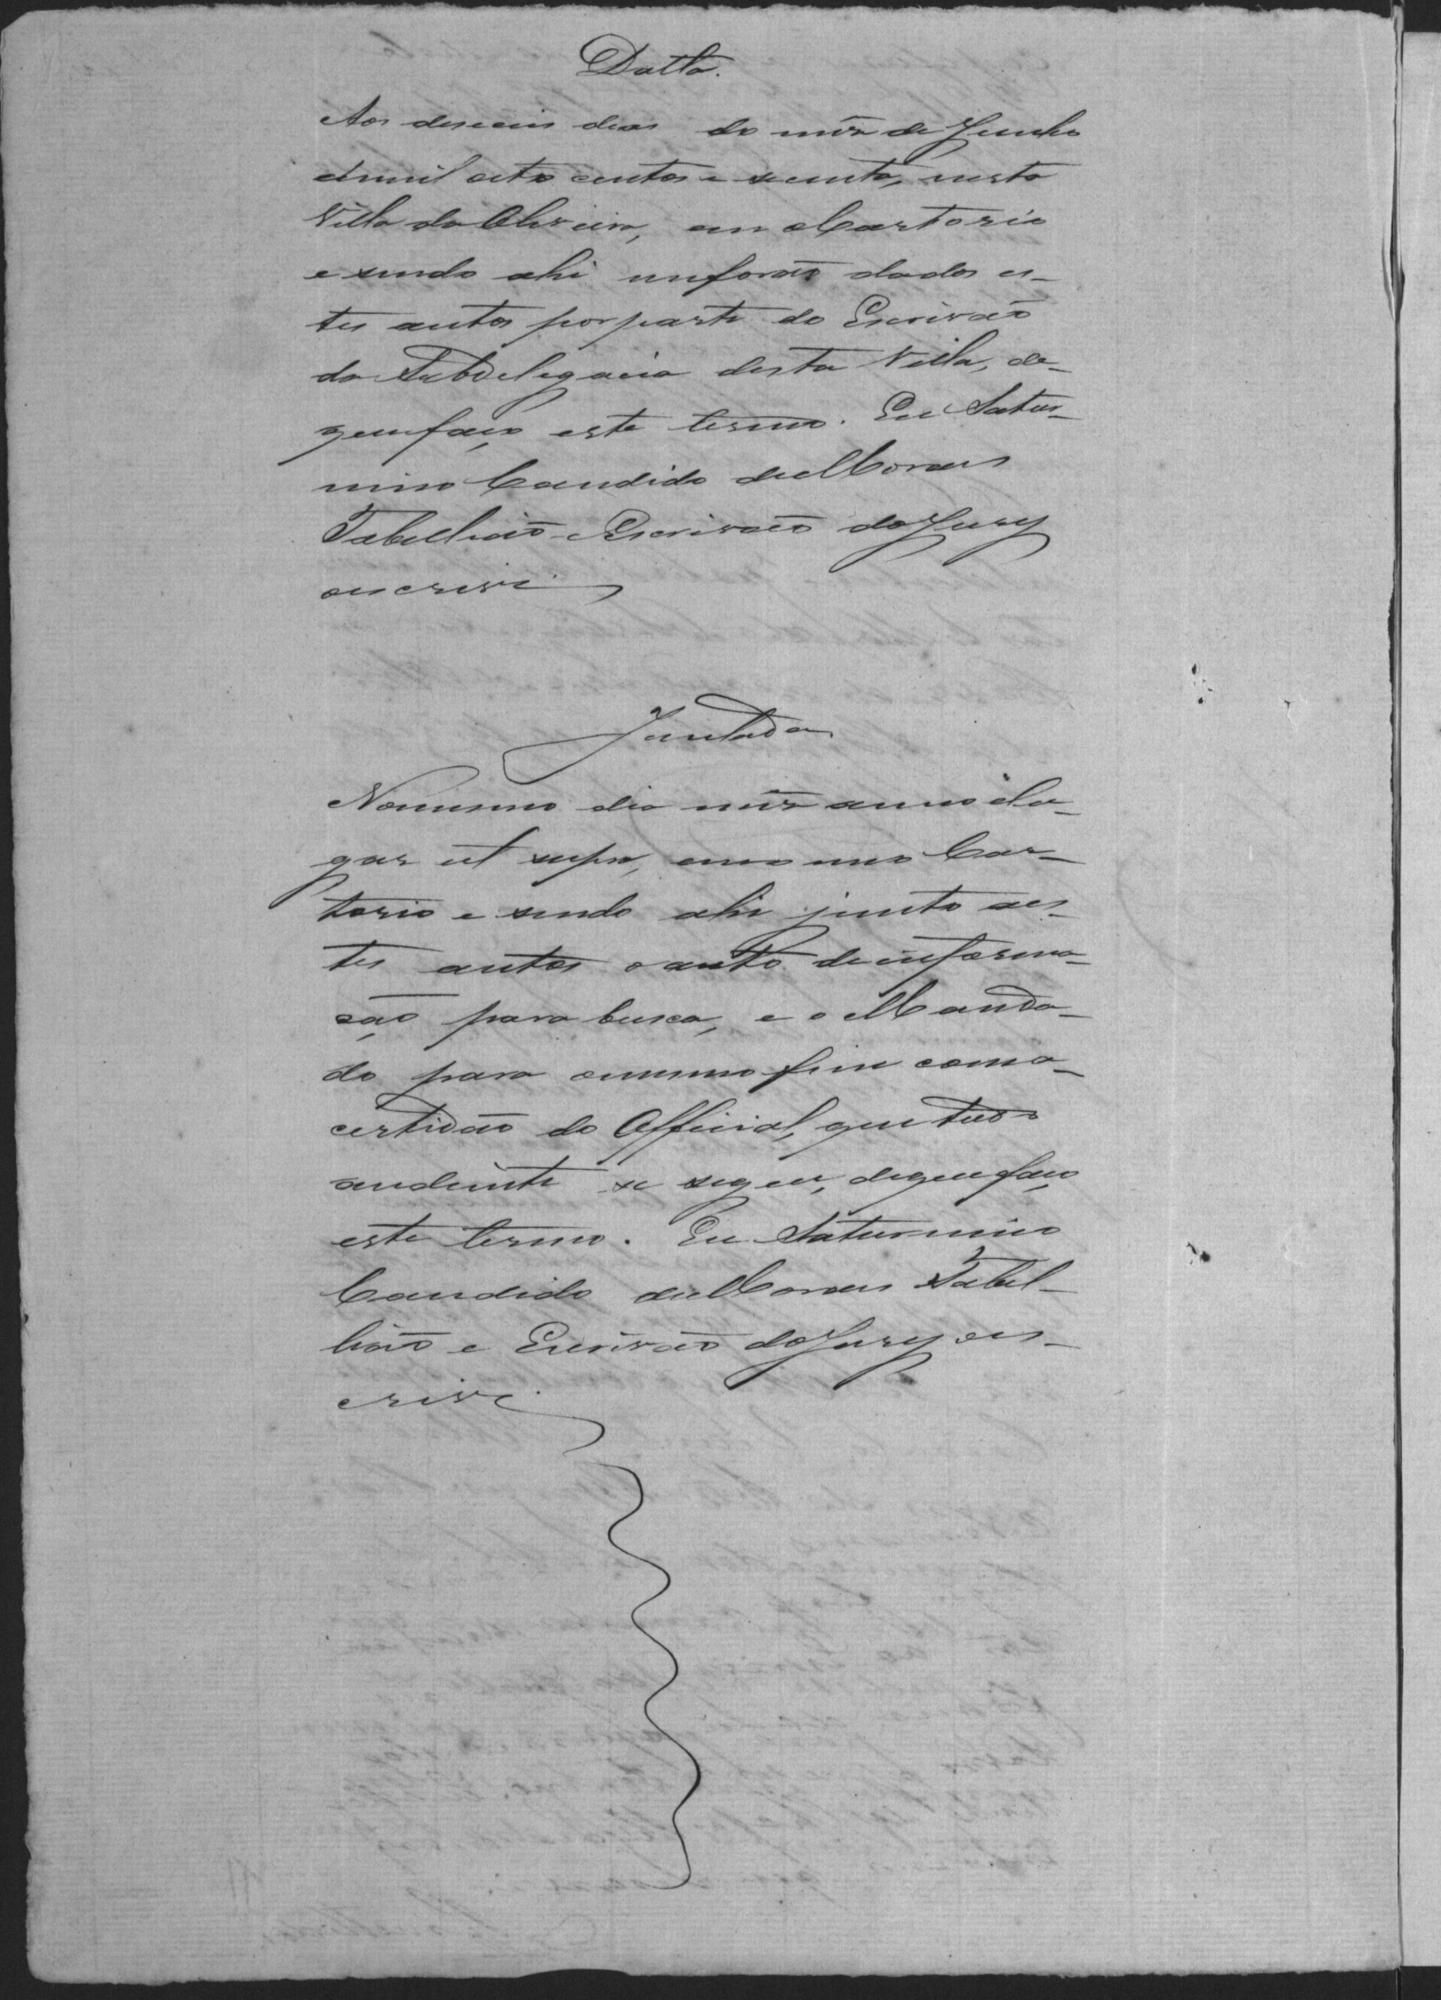 Datta.
Aos deseceis dias do mês de Junho
de mil oito centos e secenta, nesta
Villa da Oliveira, em o Cartorio
e sendo ahi me forão dados es-
tes autos por parte do Escrivão
da Subdelegacia desta Villa, de
que faço este termo. Eu Satur-
nino Candido de Moraes
Tabellião e Escrivão do Jury
o escrevi.
Juntada
No mesmo dia mês anno e lu-
gar ut supra, em o meu Car-
torio e sendo ahi junto a es-
tes autos o auto de informa-
ção para busca, e o Manda-
do para o mesmo fim com a
certidão do Official, que tudo
ao diante se segue, de que faço
este termo. Eu Saturnino
Candido de Moraes Tabel-
lião e Escrivão do Jury o es-
crevi.